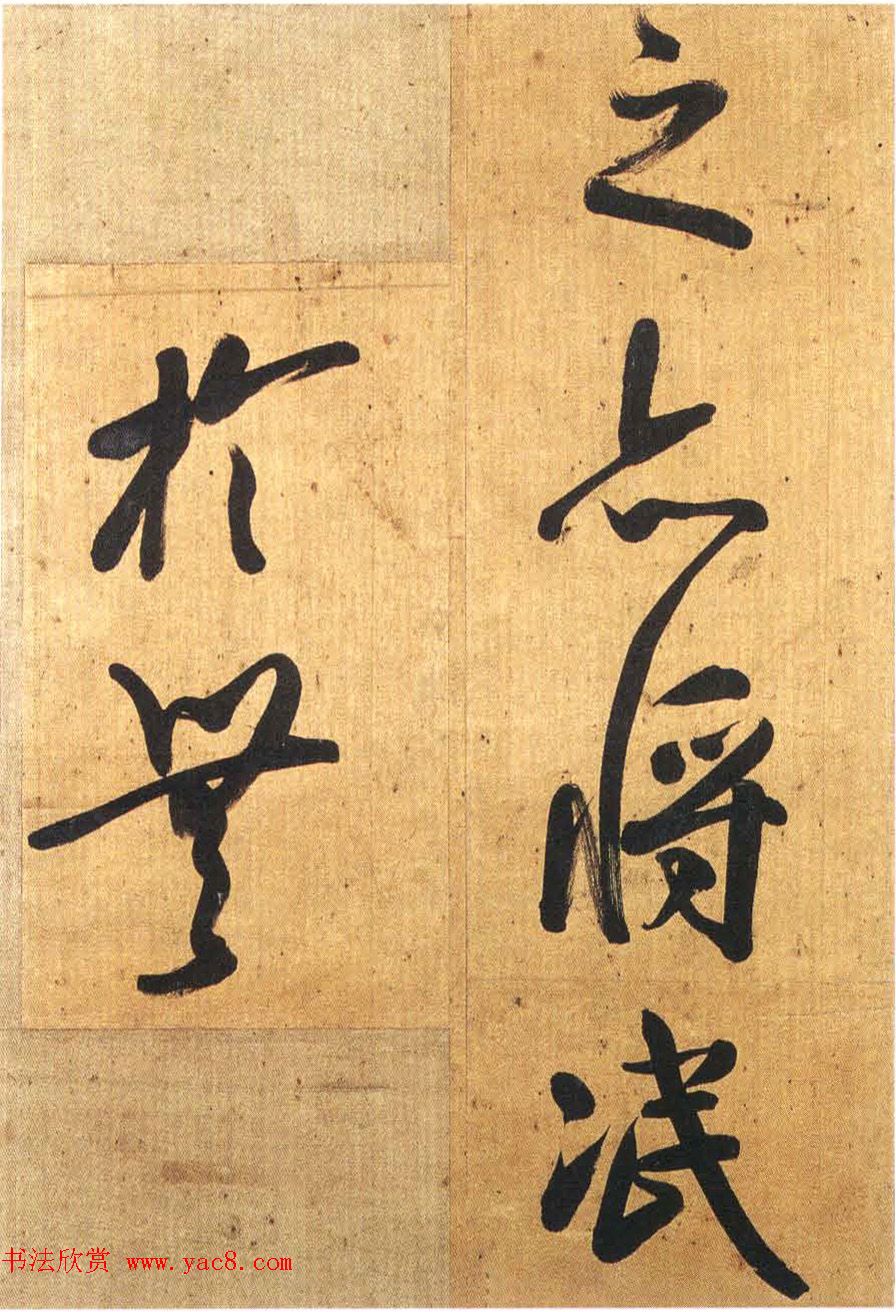 之志将泯
於無
书法欣赏 www.yac8.com